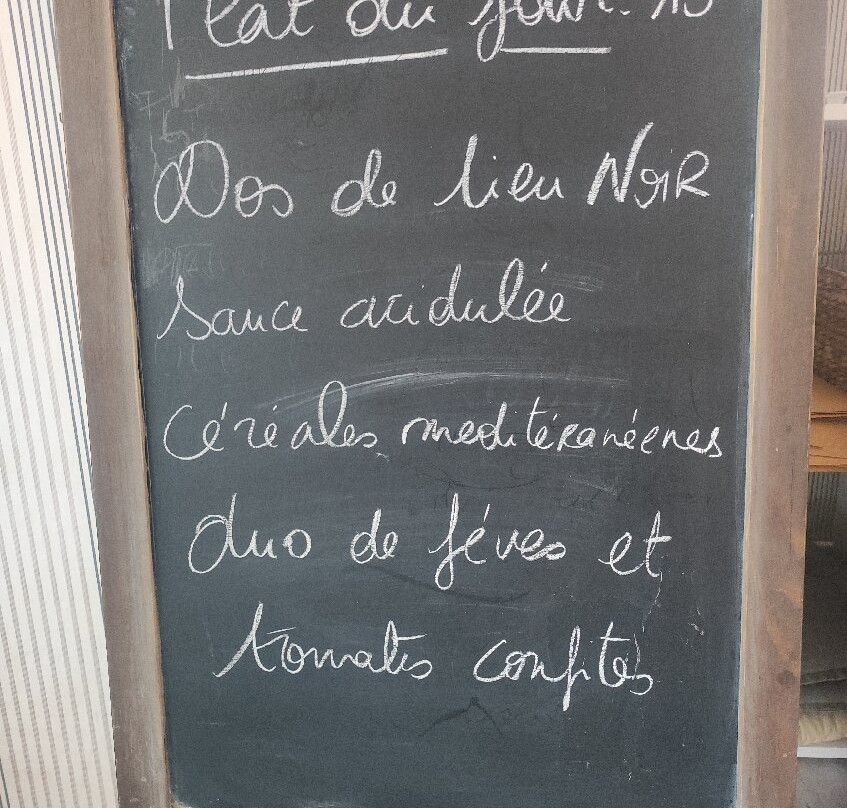 Plat du jour: 15
Dos de lieu NoiR
Sauce acidulée
Céréales meditéranéenes
duo de féves et
tomates confites